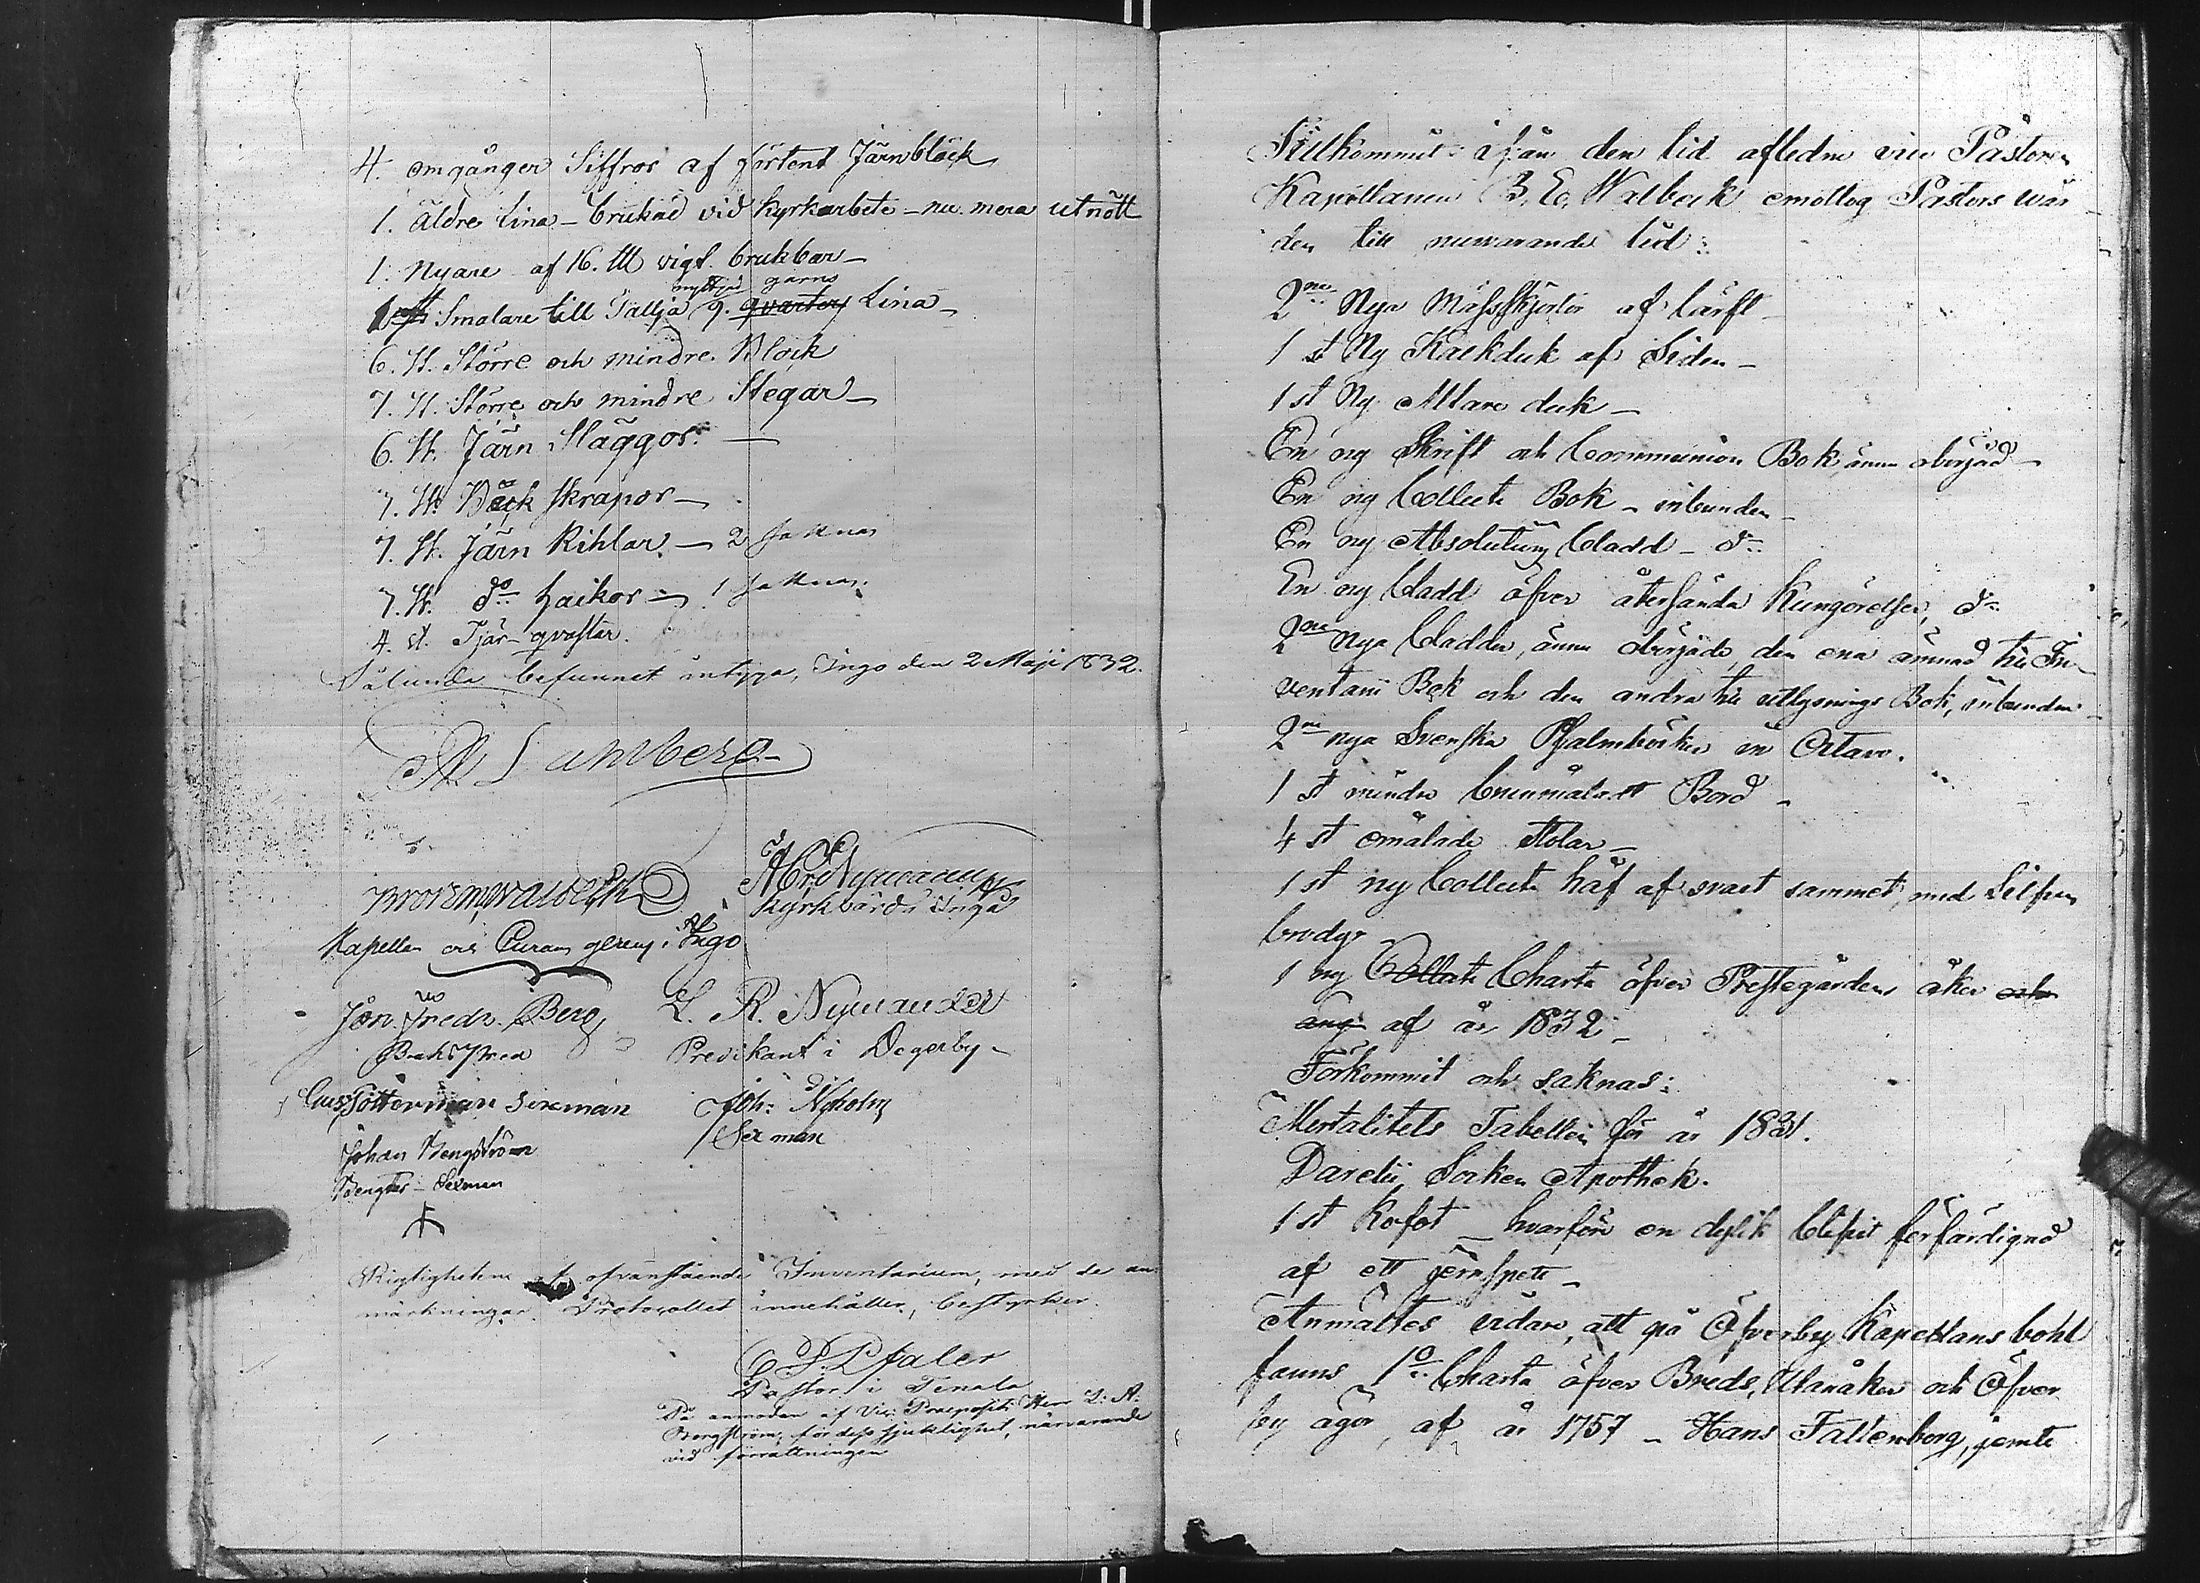 4. omgånger Siffror af förtent Järnbläck
1. Äldre Lina - brukad vid kyrkarbete - nu mera utnött
1. Nyare af 16. ℔ vigt brukbar -
garns
1 st. Smalare till Tallja 9. qvarter Lina -
6. St. Större och mindre Block
7. St. Större och mindre Stegar -
6. St. Järn Släggor. -
7. St. Bäck skrapor -
7. St. Järn Kihlar - 2 saknas
7. St. do hackor - 1 saknas.
4. st. Tjär-qvastar.
Sålunda befunnet intyga, Ingo den 2 Maji 1832.
Kyrkvärd i Ingå
Kapellan och Curam gerens i Ingo
Jon. Fredr. Berg
L. R. Nymander
Predikant i Degerby -
Gust Söderman Sexman
Joh: Nyholm
Sexman
Johan Wengström
Bengtes - Sexman
Rigtigheten af ofvanstående Inventarium, med de an-
märkningar Protocollet innehåller, bestyrker.
Pastor i Tenala
På anmodan af Vice Praeposit. Herr
Bergström, för dess sjuklighet, närvarande
vid förrättningen
Tillkommit ifrån den tid aflednе vice Pastoren
Kapellanen B. E. Walbeck emottog Pastors wår-
den till nuwarande tid:
2ne Nya Mässskjortor af lärft -
1 st Ny Kalkduk af Siden -
1 st Ny Altare duk -
En ny Skrift och Communion Bok, ännu obegjäd -
En ny Collecte Bok - inbunden -
En ny Absolutions Cladd - do
En ny Cladd öfver återsända Kungörelser, do
2ne Nya Cladder, ännu obörjade, den ena ämnad till In-
ventarii Bok och den andra till utlysnings Bok, inbundne -
2ne nya Svenska Psalmböcker in Octavo.
1 st mindre brunmåladt Bord -
4 st omålade stolar -
1 st ny Collecte håf af svart sammet, med Silfver
brodyr
1 ny Collect Charta öfver Prestegårdens åker och
äng af år 1832 -
Förkommit och saknas:
Mortalitets Tabellen för år 1831.
Darelii Socken Apothek.
1 st Kofot - hvarföre en dylik blifvit förfärdigad
af ett jernspett -
Anmältes vidare, att på Öfverby Kapellans bohl
fanns 1o Charta öfver Breds, Utanåker och Öfver
by ägor, af år 1757 - Hans Fattenborg, jemte